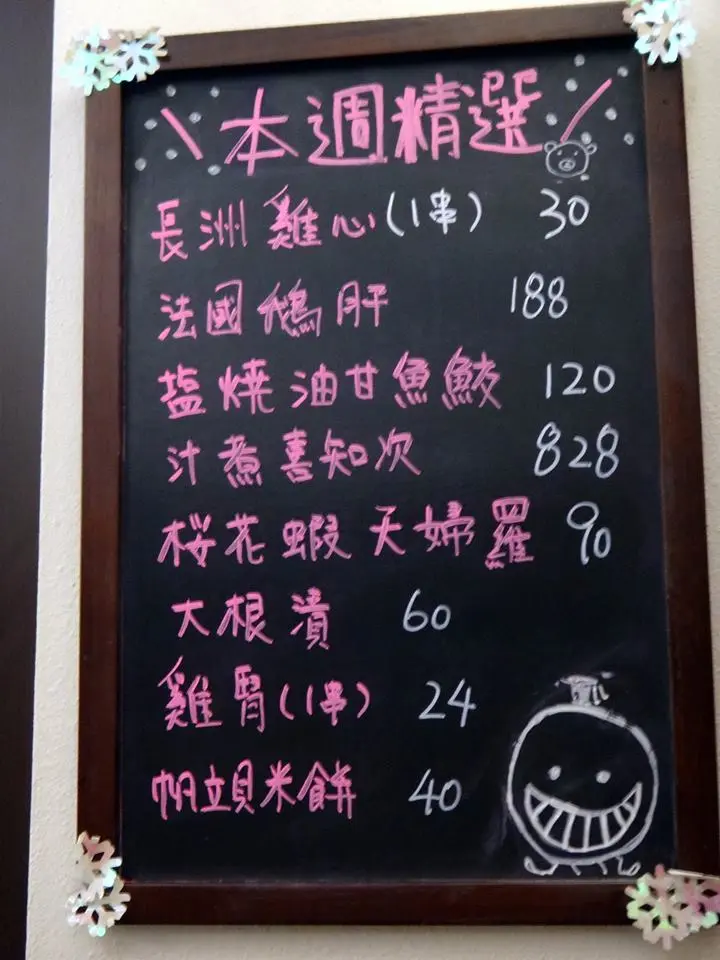 本週精選
長洲雞心(1串) 30
法國鵝肝 188
塩燒油甘魚鮫 120
汁煮喜知次 828
桜花蝦天婦羅 90
大根漬 60
雞胃(1串) 24
帆立貝米餅 40